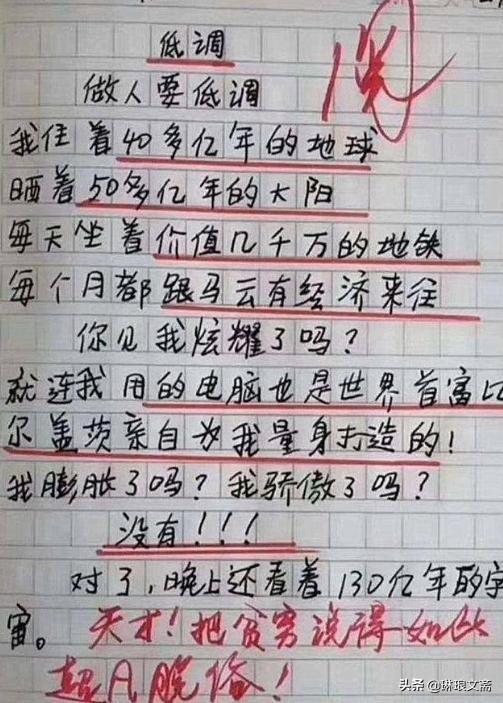 低调
做人要低调
我住着40多亿年的地球
晒着50多亿年的太阳
每天坐着价值几千万的地铁
每个月都跟马云有经济来往
你见我炫耀了吗？
就连我用的电脑也是世界首富比
尔盖茨亲自为我量身打造的！
我膨胀了吗？我骄傲了吗？
没有！！！
对了，晚上还看着130亿年的宇
宙。天才！把贫穷说得如此
超凡脱俗！
头条@琳琅文斋